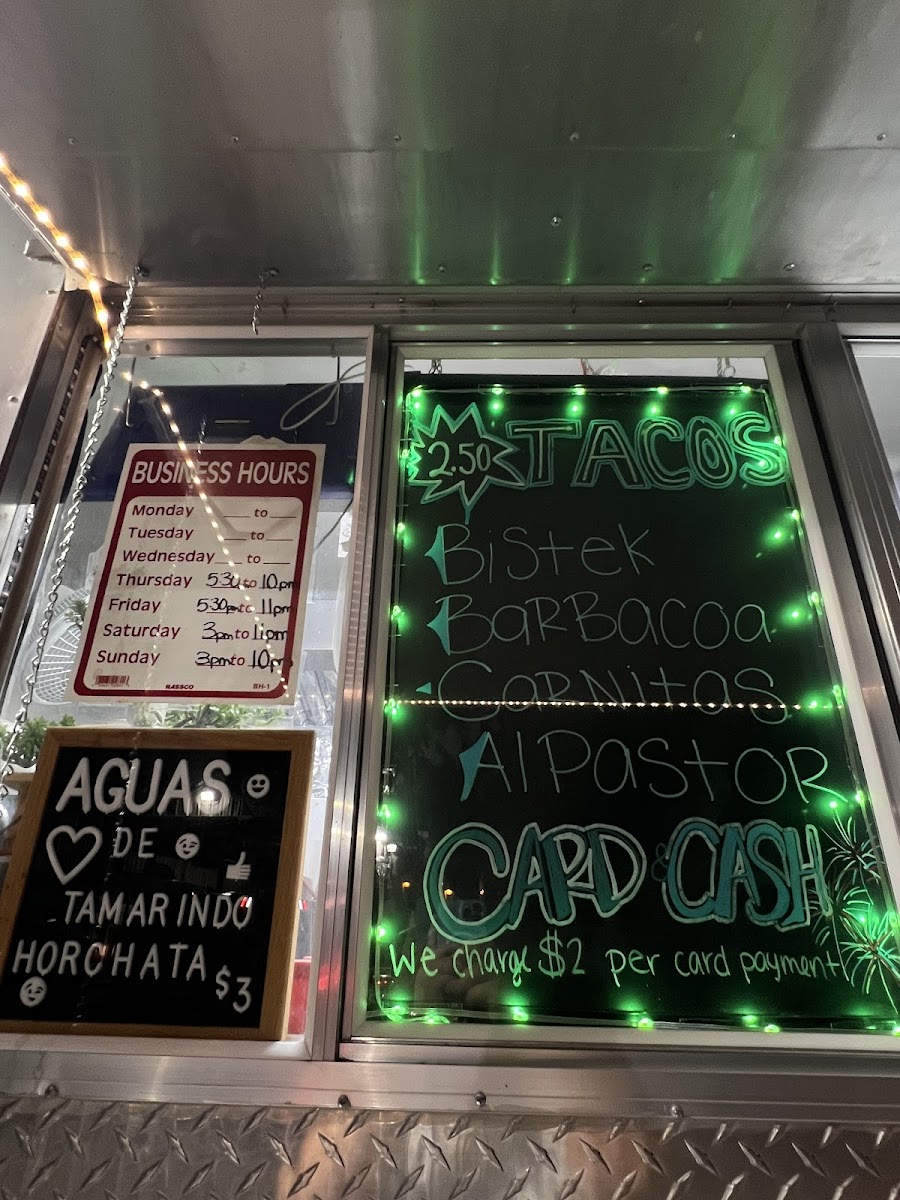 BUSINESS HOURS
Monday ___ to ___
Tuesday ___ to ___
Wednesday ___ to ___
Thursday 5:30 to 10pm
Friday 5:30pm to 11pm
Saturday 3pm to 11pm
Sunday 3pm to 10pm
BH-1
AGUAS
DE
TAMARINDO
HORCHATA
$3
2.50 TACOS
Bistek
BARBacoa
CaRNitas
Al PastoR
CARD & CASH
We charge $2 per card payment